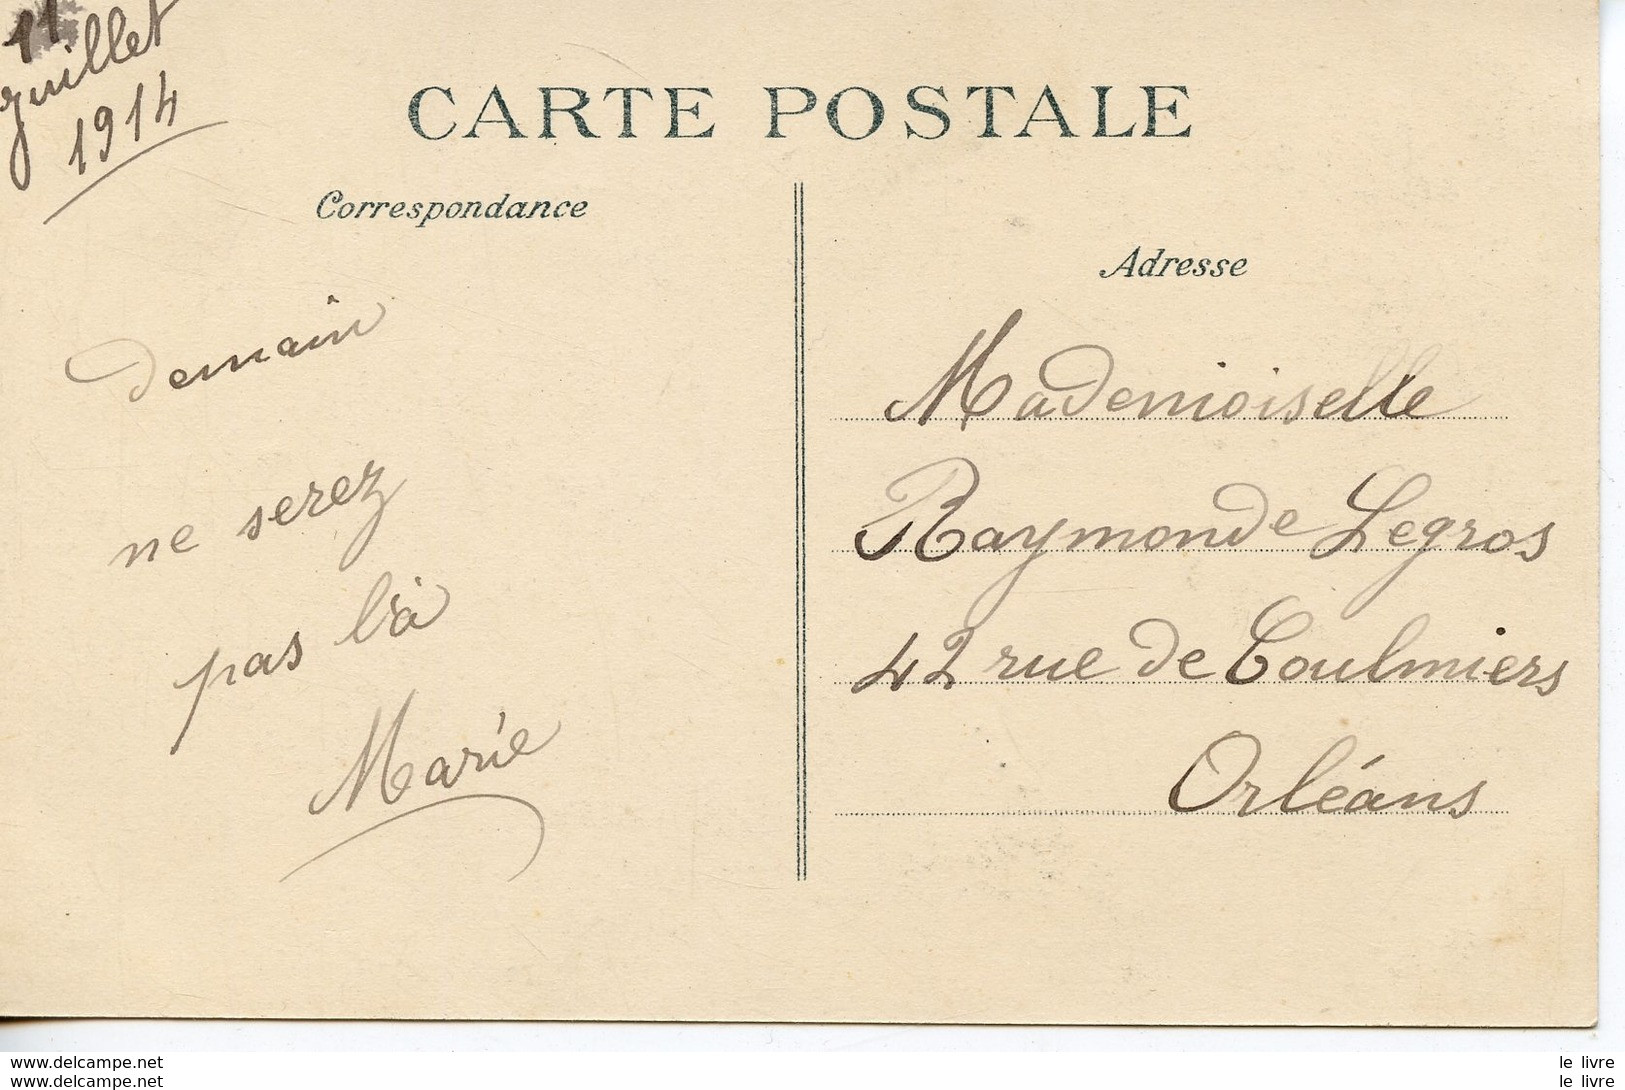 11
juillet
1914
CARTE POSTALE
Correspondance
Adresse
demain
ne serez
pas là
Marie
Mademoiselle
Raymonde Legros
42 rue de Coulmiers
Orléans
www.delcampe.net
www.delcampe.net
le livre
le livre